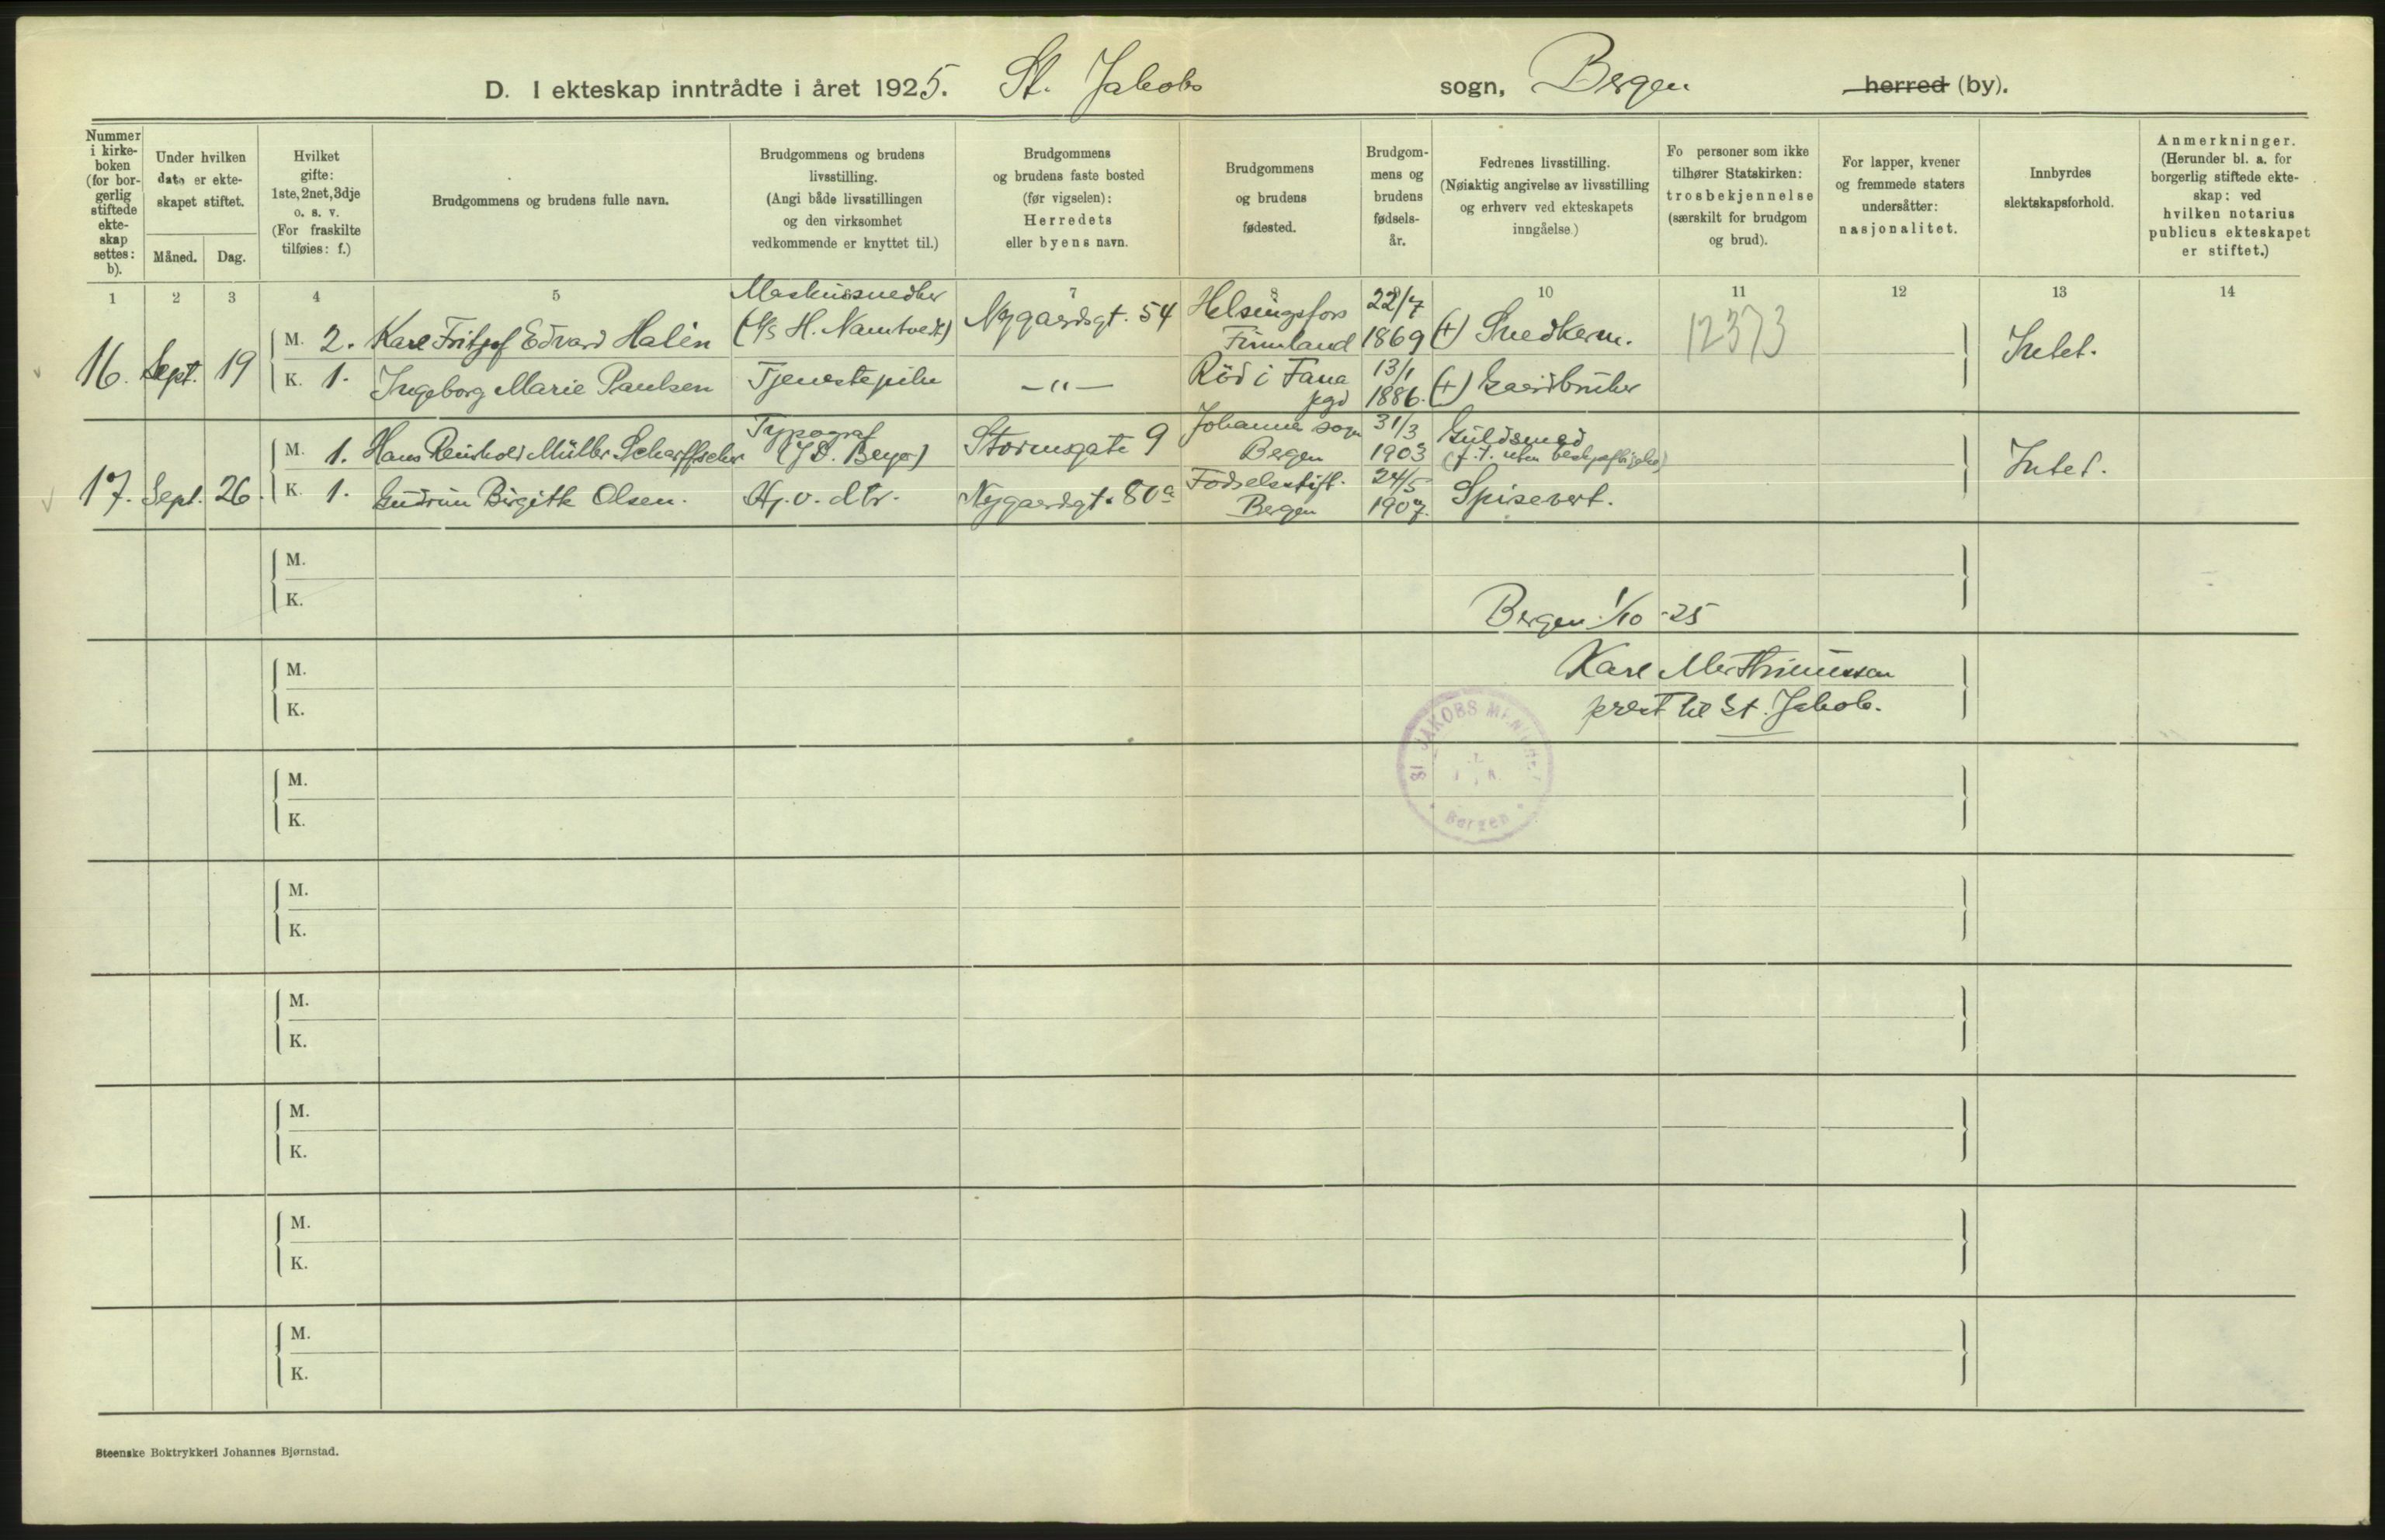 D. I ekteskap inntrådte i året 1925. St. Jakobs sogn, Bergen herred (by).
Nummer
i kirke-
boken
(for bor-
gerlig
stiftede
ekte-
skap
settes:
b).
Under hvilken
dato er ekte-
skapet stiftet.
Måned.
Dag.
Hvilket
gifte:
1ste, 2net, 3dje
o. s. v.
(For fraskilte
tilføies: f.)
Brudgommens og brudens fulle navn.
Brudgommens og brudens
livsstilling.
(Angi både livsstillingen
og den virksomhet
vedkommende er knyttet til.)
Brudgommens
og brudens faste bosted
(før vigselen):
Herredets
eller byens navn.
Brudgommens
og brudens
fødested.
Brudgom-
mens og
brudens
fødsels-
år.
Fedrenes livsstilling.
(Nøiaktig angivelse av livsstilling
og erhverv ved ekteskapets
inngåelse)
Fo personer som ikke
tilhører Statskirken:
trosbekjennelse
(særskilt for brudgom
og brud).
For lapper, kvener
og fremmede staters
undersåtter:
nasjonalitet.
Innbyrdes
slektskapsforhold.
Anmerkninger.
(Herunder bl. a. for
borgerlig stiftede ekte-
skap: ved
hvilken notarius
publicus ekteskapet
er stiftet.)
1 2 3 4 5 7 8 10 11 12 13 14
16. Sept. 19
M. 2. Karl Fritjof Edvard Halén
Maskinsnedker
(A/S H. Namtvedt)
Nygaardsgt. 54
Helsingfors
Finnland
22/7
1869
(+) Snedkerm.
12373
Intet.
K. 1. Ingeborg Marie Paulsen
Tjenestepike
— " —
Röd i Fana
pgd
13/1
1886.
(+) Gaardbruker
17. Sept. 26.
M. 1. Hans Reinhold Müller Scharffscher
Typograf
(J. D. Beyer)
Stormgate 9
Johannes sogn
Bergen
31/3
1903
Guldsmed
(f. t. uten beskjæftigelse)
Intet.
K. 1. Gudrun Birgitte Olsen.
Hj. v. dtr.
Nygaardgt. 80a
Fødselsstift.
Bergen
24/5
1907.
Spisevert.
M.
K.
Bergen 1/10 -25
M.
Karl
K.
prest til St. Jakob.
ST. JAKOBS MENIGHET
Bergen
M.
K.
M.
K.
M.
K.
M.
K.
M.
K.
M.
K.
Steenske Boktrykkeri Johannes Bjørnstad.